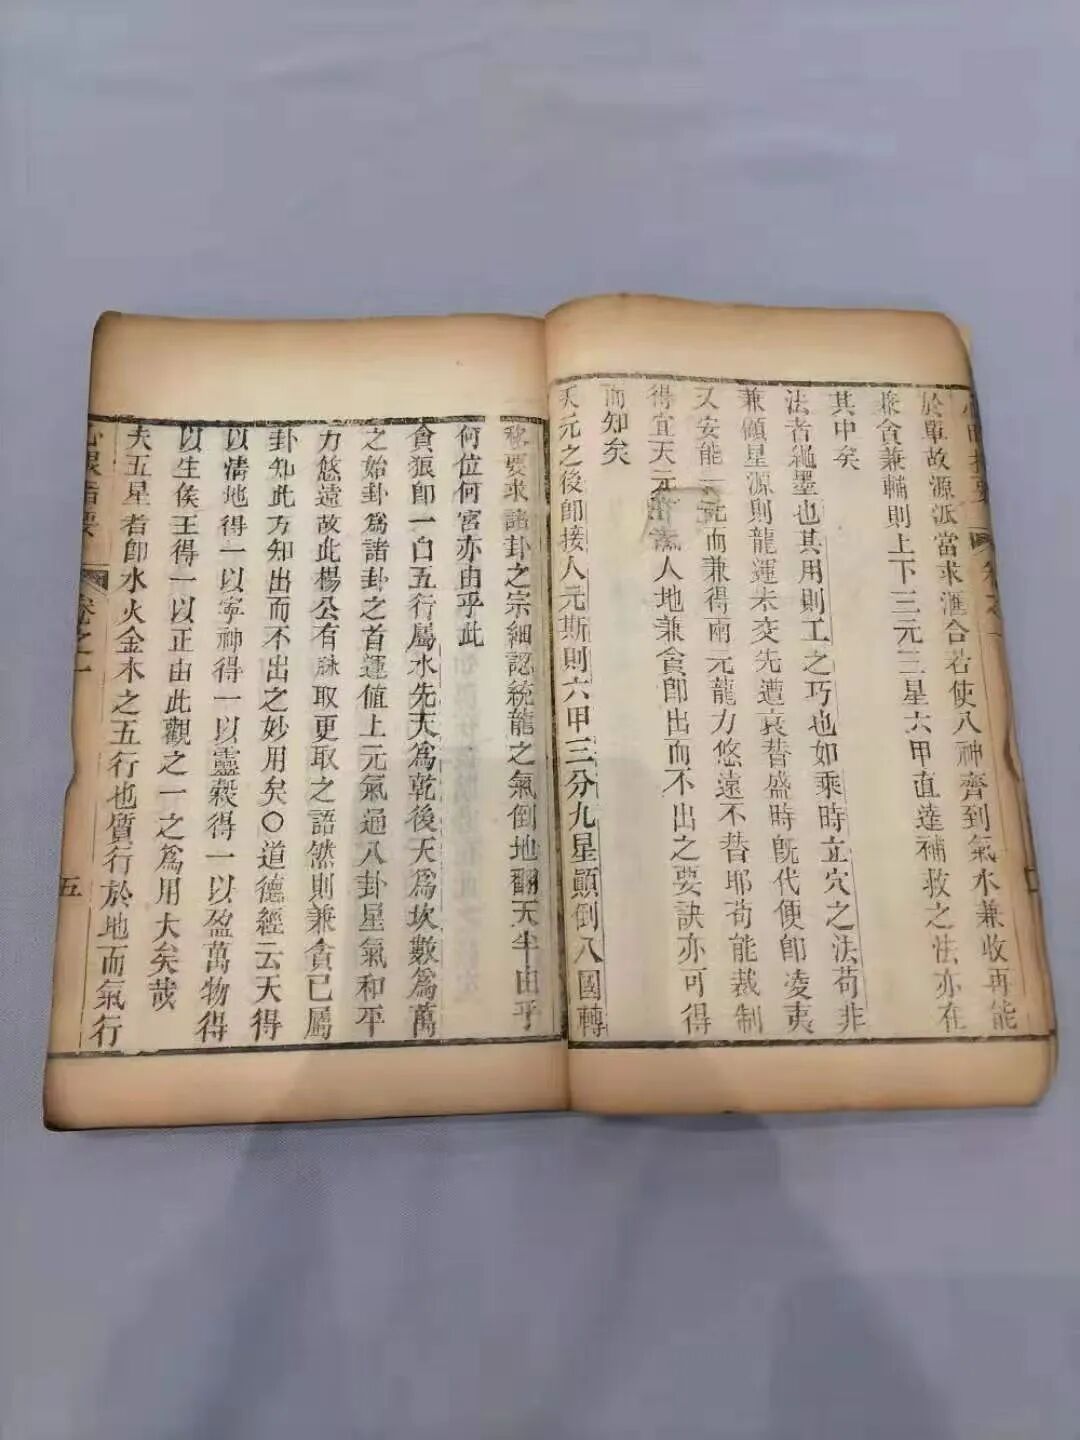 心眼指要 卷之一
於單故源派當求滙合若使八神齊到氣水兼收再能
兼貪兼輔則上下三元三星六甲直達補救之法亦在
其中矣
法者繩墨也其用則工之巧也如乘時立穴之法苟非
兼顧星源則龍運未交先遭衰替盛時旣代便卽凌夷
又安能一元而兼得兩元龍力悠遠不替耶苟能裁制
得宜天元人地兼貪卽出而不出之要訣亦可得
而知矣
天元之後卽接人元斯則六甲三分九星顚倒八國轉
移要求諸卦之宗細認統龍之氣倒地翻天半由乎
何位何宮亦由乎此
貪狼卽一白五行屬水先天爲乾後天爲坎數爲萬
之始卦爲諸卦之首運值上元氣通八卦星氣和平
力悠遠故此楊公有脉取更取之語然則兼貪已屬
卦知此方知出而不出之妙用矣〇道德經云天得
以淸地得一以寧神得一以靈穀得一以盈萬物得
以生侯王得一以正由此觀之一之爲用大矣哉
夫五星者卽水火金木之五行也質行於地而氣行
心眼指要 卷之一 五